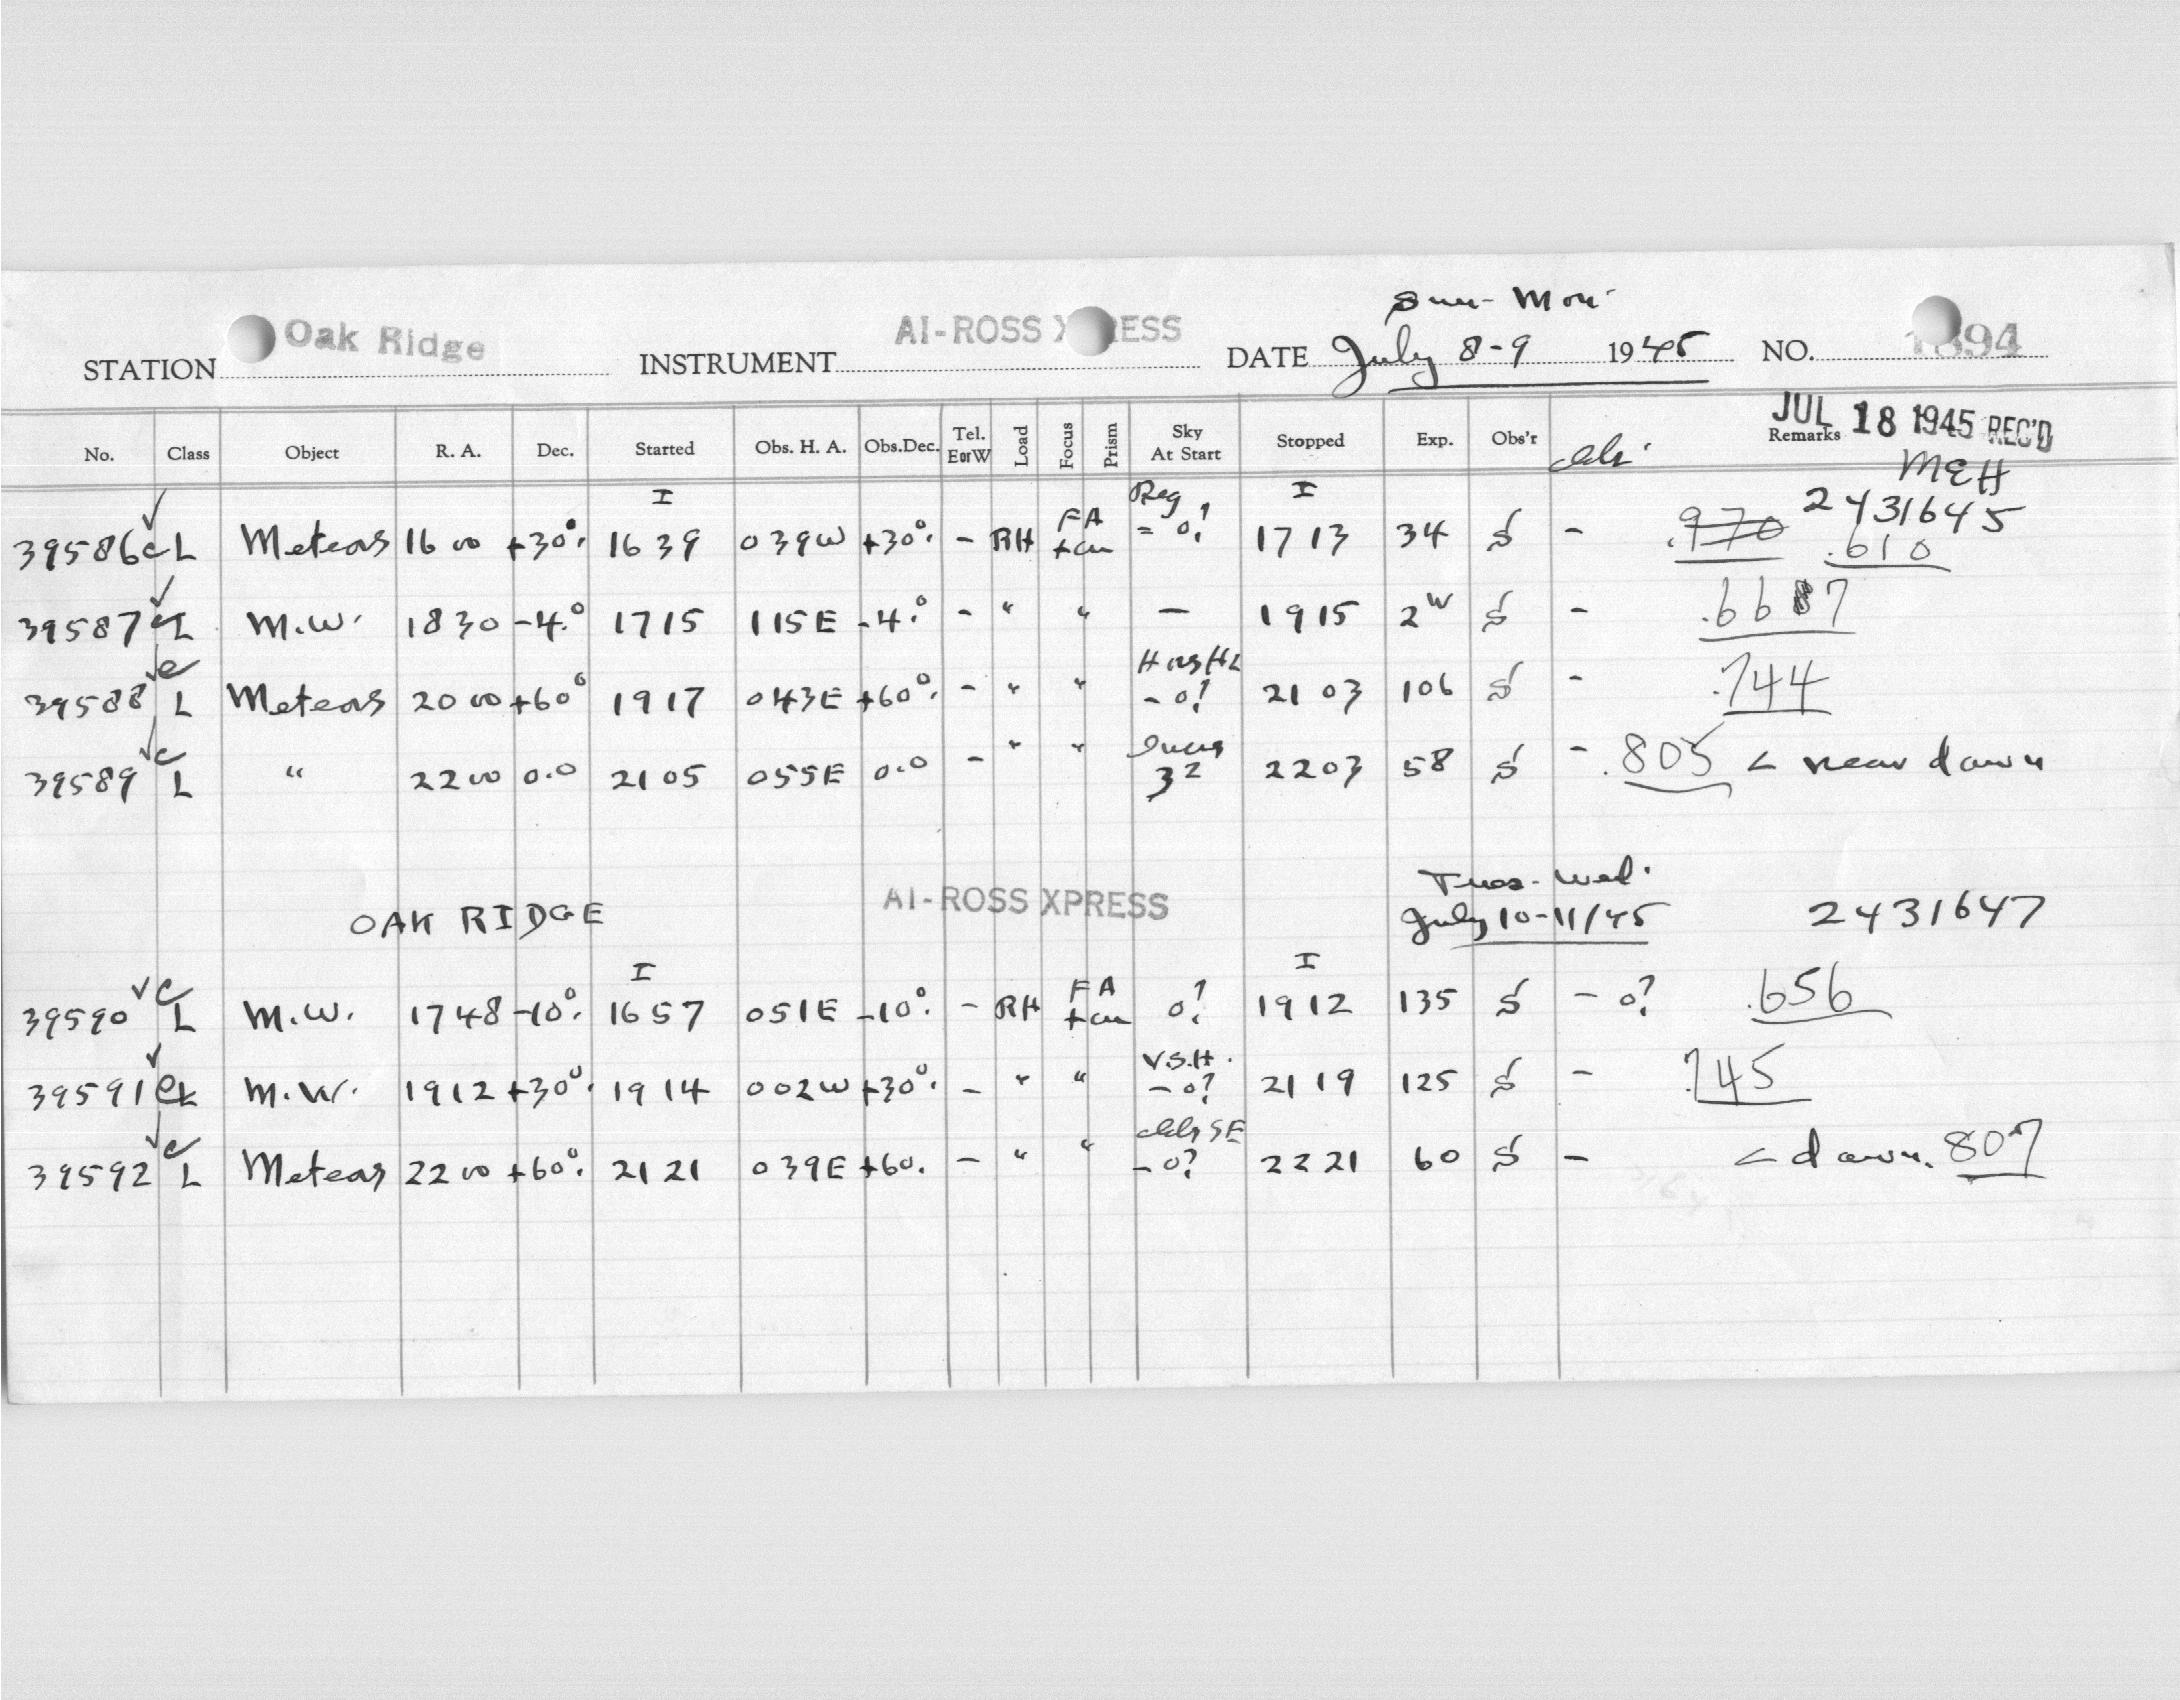 Sun - Mon.
STATION Oak Ridge INSTRUMENT AI-ROSS XPRESS DATE July 8-9 1945 NO. 1894
JUL 18 1945 REC'D
No. Class Object R. A. Dec. Started Obs. H. A. Obs.Dec. Tel. E or W Load Focus Prism Sky At Start Stopped Exp. Obs'r Remarks
MEH
I I 2431645
39586 c L Meteors 16 00 +30°. 16 39 039W +30°. - RH FA + cu Reg = 0? 17 13 34 S - .970 .610
39587 c L M.W. 1830 -4.° 1715 115E -4.° - " " - 1915 2 S - .6687
39588 c L Meteors 20 00 +60° 1917 043E +60°. - " " - 0? 21 03 106 S - .744
39589 c L " 22 00 0.0 21 05 055E 0.0 - " " 3 2 2203 58 S - .805 < near dawn
OAK RIDGE AI-ROSS XPRESS Tues - Wed. July 10-11/45 2431647
I I
39590 c L M.W. 1748 -10°. 1657 051E -10°. - RH FA + cu 0? 1912 135 S - 0? .656
39591 c L M.W. 1912 +30°. 1914 002W +30°. - " " V.S.H. - 0? 21 19 125 S - .745
39592 c L Meteors 22 00 +60°. 21 21 039E +60. - " " SE - 0? 2221 60 S - < dawn. 807